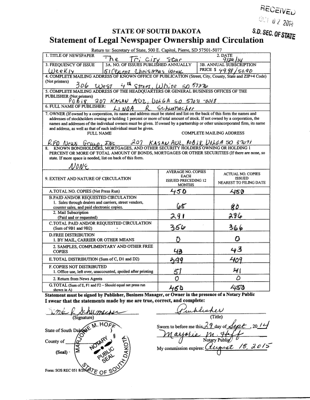 RECEIVED
S.D. SEC. OF STATE
STATE OF SOUTH DAKOTA
Statement of Legal Newspaper Ownership and Circulation
Return to: Secretary of State, 500 E. Capitol, Pierre, SD 57501-5077
1. TITLE OF NEWSPAPER
The Tri City Star
2. DATE
3. FREQUENCY OF ISSUE
Weekly
3A. NO. OF ISSUES PUBLISHED ANNUALLY
3B. ANNUAL SUBSCRIPTION PRICE $
4. COMPLETE MAILING ADDRESS OF KNOWN OFFICE OF PUBLICATION (Street, City, County, State and ZIP+4 Code)
(Not printers)
306 West 4th
5. COMPLETE MAILING ADDRESS OF THE HEADQUARTERS OR GENERAL BUSINESS OFFICES OF THE
PUBLISHER (Not printers)
207 Kasan Ave
6. FULL NAME OF PUBLISHER:
Linda R Schumacher
7. OWNER (If owned by a corporation, its name and address must be stated and also immediately thereafter the names and
addresses of stockholders owning or holding 1 percent or more of total amount of stock. If not owned by a corporation, the
names and addresses of the individual owners must be given. If owned by a partnership or other unincorporated firm, its name
and address, as well as that of each individual must be given.
FULL NAME COMPLETE MAILING ADDRESS
207 Kasan Ave
8. KNOWN BONDHOLDERS, MORTGAGEES, AND OTHER SECURITY HOLDERS OWNING OR HOLDING 1
PERCENT OR MORE OF TOTAL AMOUNT OF BONDS, MORTGAGES OR OTHER SECURITIES (If there are none, so
state. If more space is needed, list on back of this form.
NONE
9. EXTENT AND NATURE OF CIRCULATION
AVERAGE NO. COPIES EACH ISSUED PRECEDING 12 MONTHS
ACTUAL NO. COPIES ISSUED NEAREST TO FILING DATE
A. TOTAL NO. COPIES (Net Press Run) 450 450
B. PAID AND/OR REQUESTED CIRCULATION
1. Sales through dealers and carriers, street vendors,
counter sales, and paid electronic copies. 65 80
2. Mail Subscription
(Paid and/or requested) 291 286
C. TOTAL PAID AND/OR REQUESTED CIRCULATION
(Sum of 9B1 and 9B2) 356 366
D. FREE DISTRIBUTION
1. BY MAIL, CARRIER OR OTHER MEANS 0 0
2. SAMPLES, COMPLIMENTARY AND OTHER FREE
COPIES 43 43
E. TOTAL DISTRIBUTION (Sum of C, D1 and D2) 399 409
F. COPIES NOT DISTRIBUTED
1. Office use, left over, unaccounted, spoiled after printing 51 41
2. Return from News Agents 0 0
G. TOTAL (Sum of E, F1 and F2 - Should equal net press run
shown in A) 450 450
Statement must be signed by Publisher, Business Manager, or Owner in the presence of a Notary Public
I swear that the statements made by me are true, correct, and complete:
Publisher
(Signature) (Title)
State of South Dakota
Sworn to before me this 29 day of Sept, 2014
County of
Marjorie M. Hoff
Notary Public
(Seal)
My commission expires: August 18, 2015
MARJORIE M. HOFF
NOTARY PUBLIC
STATE OF SOUTH DAKOTA